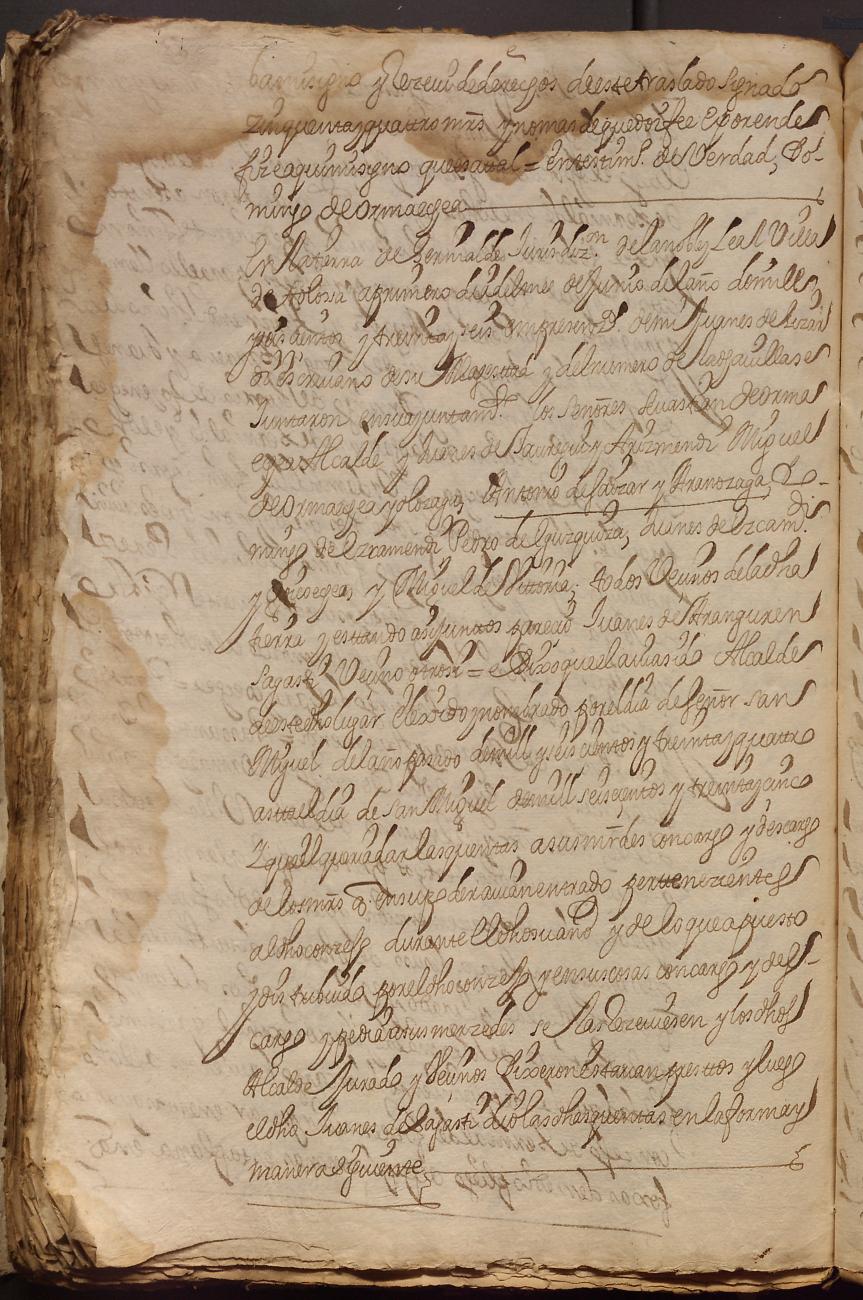 ba mi signo y Recevi de derechos de este traslado signado
zinquenta y quattro mrs y no mas de que doi fee E por ende
fize aqui mi signo que es atal = en testimº de Verdad, Do-
mingo de Ormaegea
En la tierra de Jurisdizon de la noble y Leal Villa
de tolosa a primero dia del mes de Junio del año de mill
y seis cientos y treinta y seis en presenzª de mi Juanes de
escriuano de su Magestad y del numero de la dha villa se
Juntaron en su ajuntamtº los señores Seuastian de Orma
egea Alcalde y Juanes de Jauregui y Arizmendi Miguel
de Ormaegea y olozaga, Antonio de y Aranozaga, Do-
mingo de Izramendi Pedro de Juanes de
y Miguel de Vittoria, todos Vecinos de la dha
tierra y estando asi junttos parecio Juanes de Aranguren
Sagasti Vecino otrosi = e Dixo que el auia sido Alcalde
de este dho lugar Elexido y nombrado por el dia de Señor San
Miguel del año pasado de mill y seis cientos y treinta y quattro
asta el dia de San Miguel de mill seiscientos y treinta y cinco
y que el queria dar las quentas a sus mrdes con cargo y descargo
de los mrs q en su poder auian entrado pertenezientes
al dho conzejo durante el dho su año y de lo que a puesto
y distribuido por el dho conzejo y en sus cosas con cargo y des-
cargo y pedia a sus merzedes se las Rezeuiesen y los dhos
Alcalde Jurado y Vecinos Dixeron estauan presttos y luego
el dho Juanes de Sagasti dio las dhas quentas en la forma y
manera siguiente